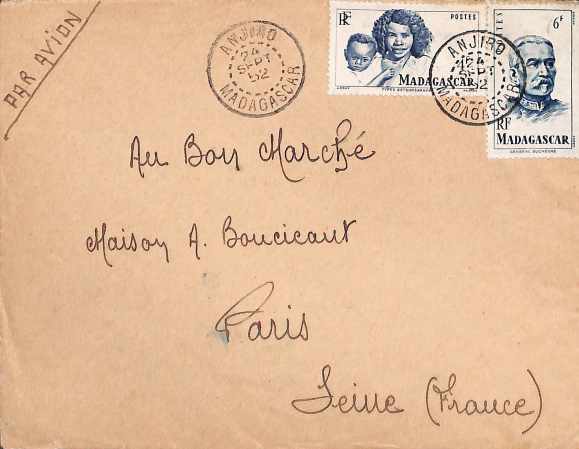 PAR AVION
ANJIRO
24
SEPT
52
MADAGASCAR
RF
POSTES
MADAGASCAR
ANJIRO
24
SEPT
52
MADAGASCAR
POSTES
6F
RF
MADAGASCAR
GÉNÉRAL DUCHESNE
Au Bon Marché
Maison A. Boucicaut
Paris
Seine (France)